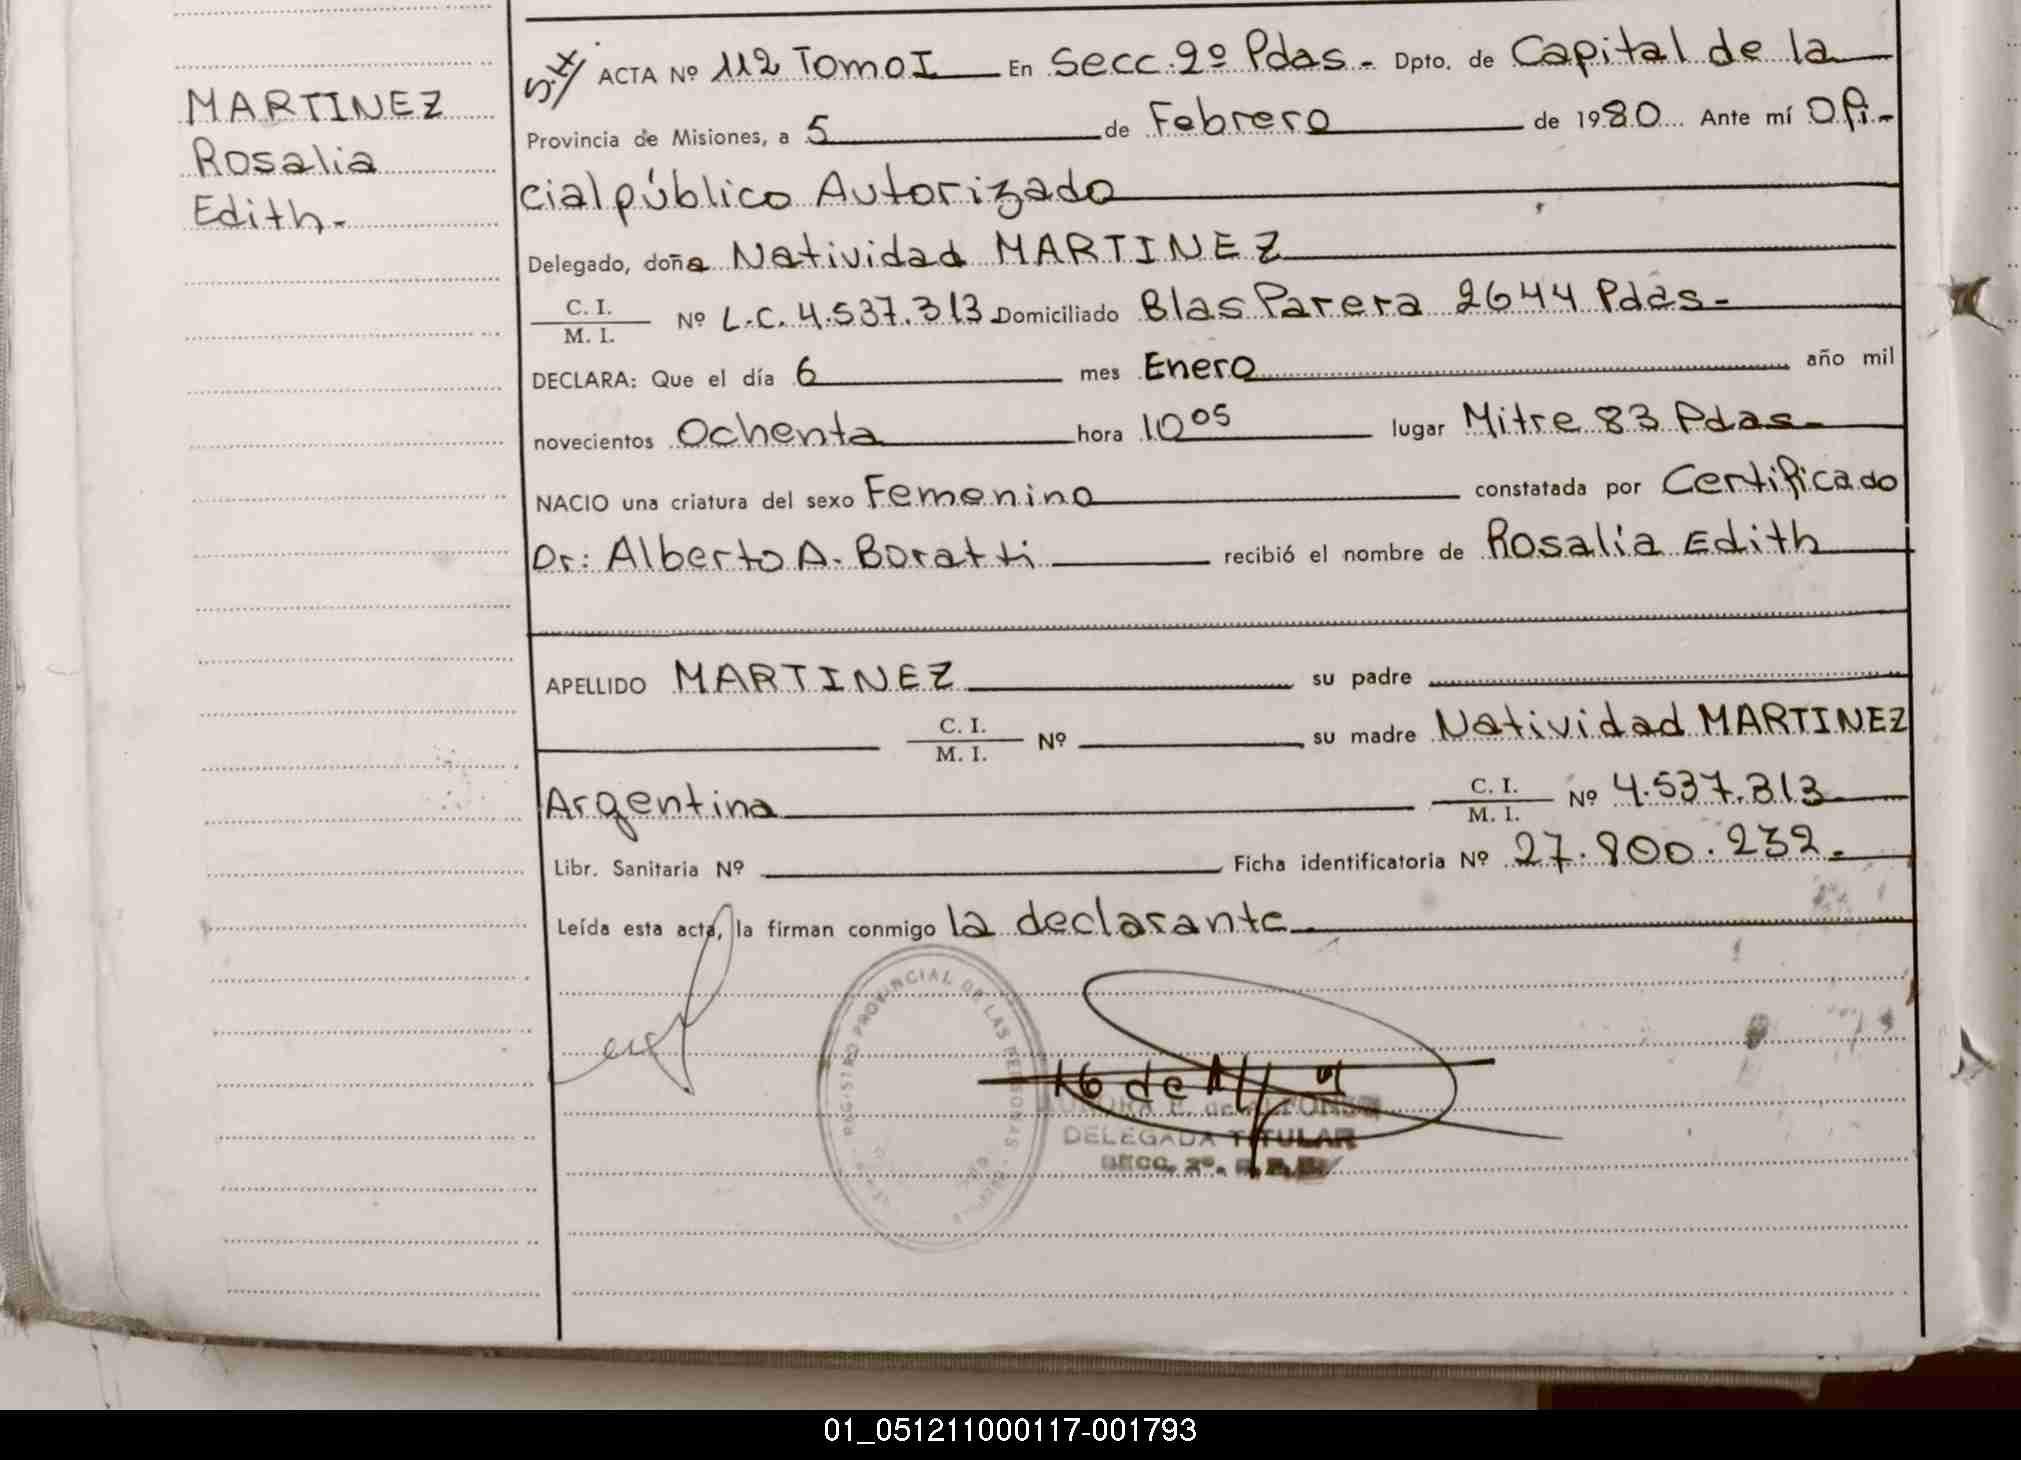 MARTINEZ
Rosalia
Edith-
ACTA Nº 112 Tomo I En Secc. 2º Pdas. Dpto. de Capital de la
Provincia de Misiones, a 5 de Febrero de 1980 Ante mí Ofi-
cial público Autorizado
Delegado, doña Natividad MARTINEZ
C. I.
M. I. Nº L.C. 4.537.313 Domiciliado Blas Parera 2644 Pdas-
DECLARA: Que el día 6 mes Enero año mil
novecientos Ochenta hora 10 05 lugar Mitre 83 Pdas-
NACIO una criatura del sexo Femenino constatada por Certificado
Dr: Alberto A. Boratti recibió el nombre de Rosalía Edith
APELLIDO MARTINEZ su padre
C. I.
M. I. Nº su madre Natividad MARTINEZ
Argentina C. I.
M. I. Nº 4.537.313
Libr. Sanitaria Nº Ficha identificatoria Nº 27.900.232.
Leída esta acta, la firman conmigo la declarante
REGISTRO PROVINCIAL DE LAS PERSONAS
DELEGADA TITULAR
SECC. 2º.
01_051211000117-001793